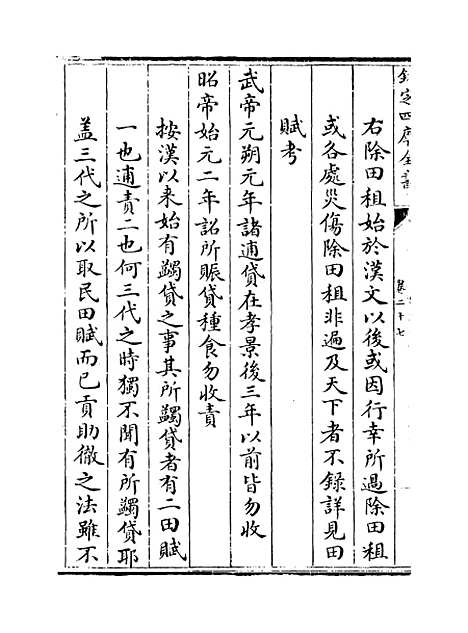 欽定四庫全書
卷二十七
右除田租始於漢文以後或因行幸所過除田租
或各處災傷除田租非遍及天下者不錄詳見田
賦考
武帝元朔元年諸逋貸在孝景後三年以前皆勿收
昭帝始元二年詔所賑貸種食勿收責
按漢以來始有蠲貸之事其所蠲貸者有二田賦
一也逋責二也何三代之時獨不聞有所蠲貸耶
蓋三代之所以取民田賦而已貢助徹之法雖不